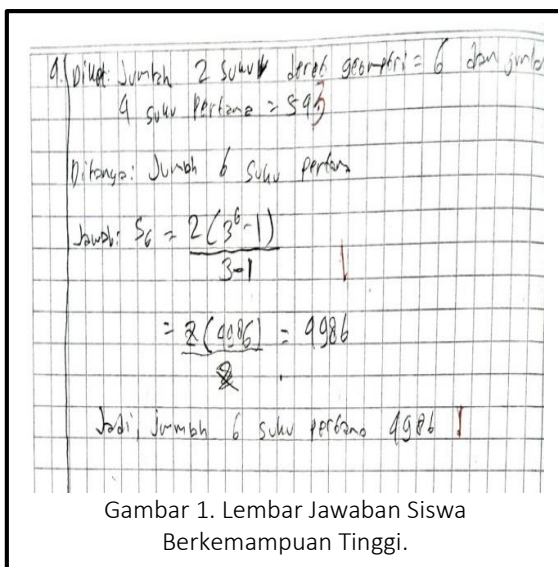 Diket: Jumlah 2 suku deret geometri = 6 dan
4 suku pertama =
Ditanya: Jumlah 6 suku pertama
Jawab: S6 = 2(3^6-1)
3-1
= 2(4986) = 4986
2
Jadi, jumlah 6 suku pertama 4986
Gambar 1. Lembar Jawaban Siswa
Berkemampuan Tinggi.